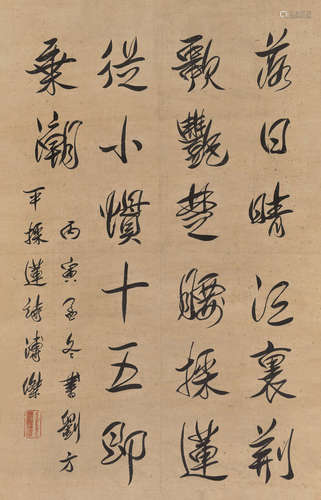 落日晴江裏荆
歌艷楚腰採蓮
從小慣十五即
乘潮
丙寅孟冬書劉方
平採蓮詩溥傑